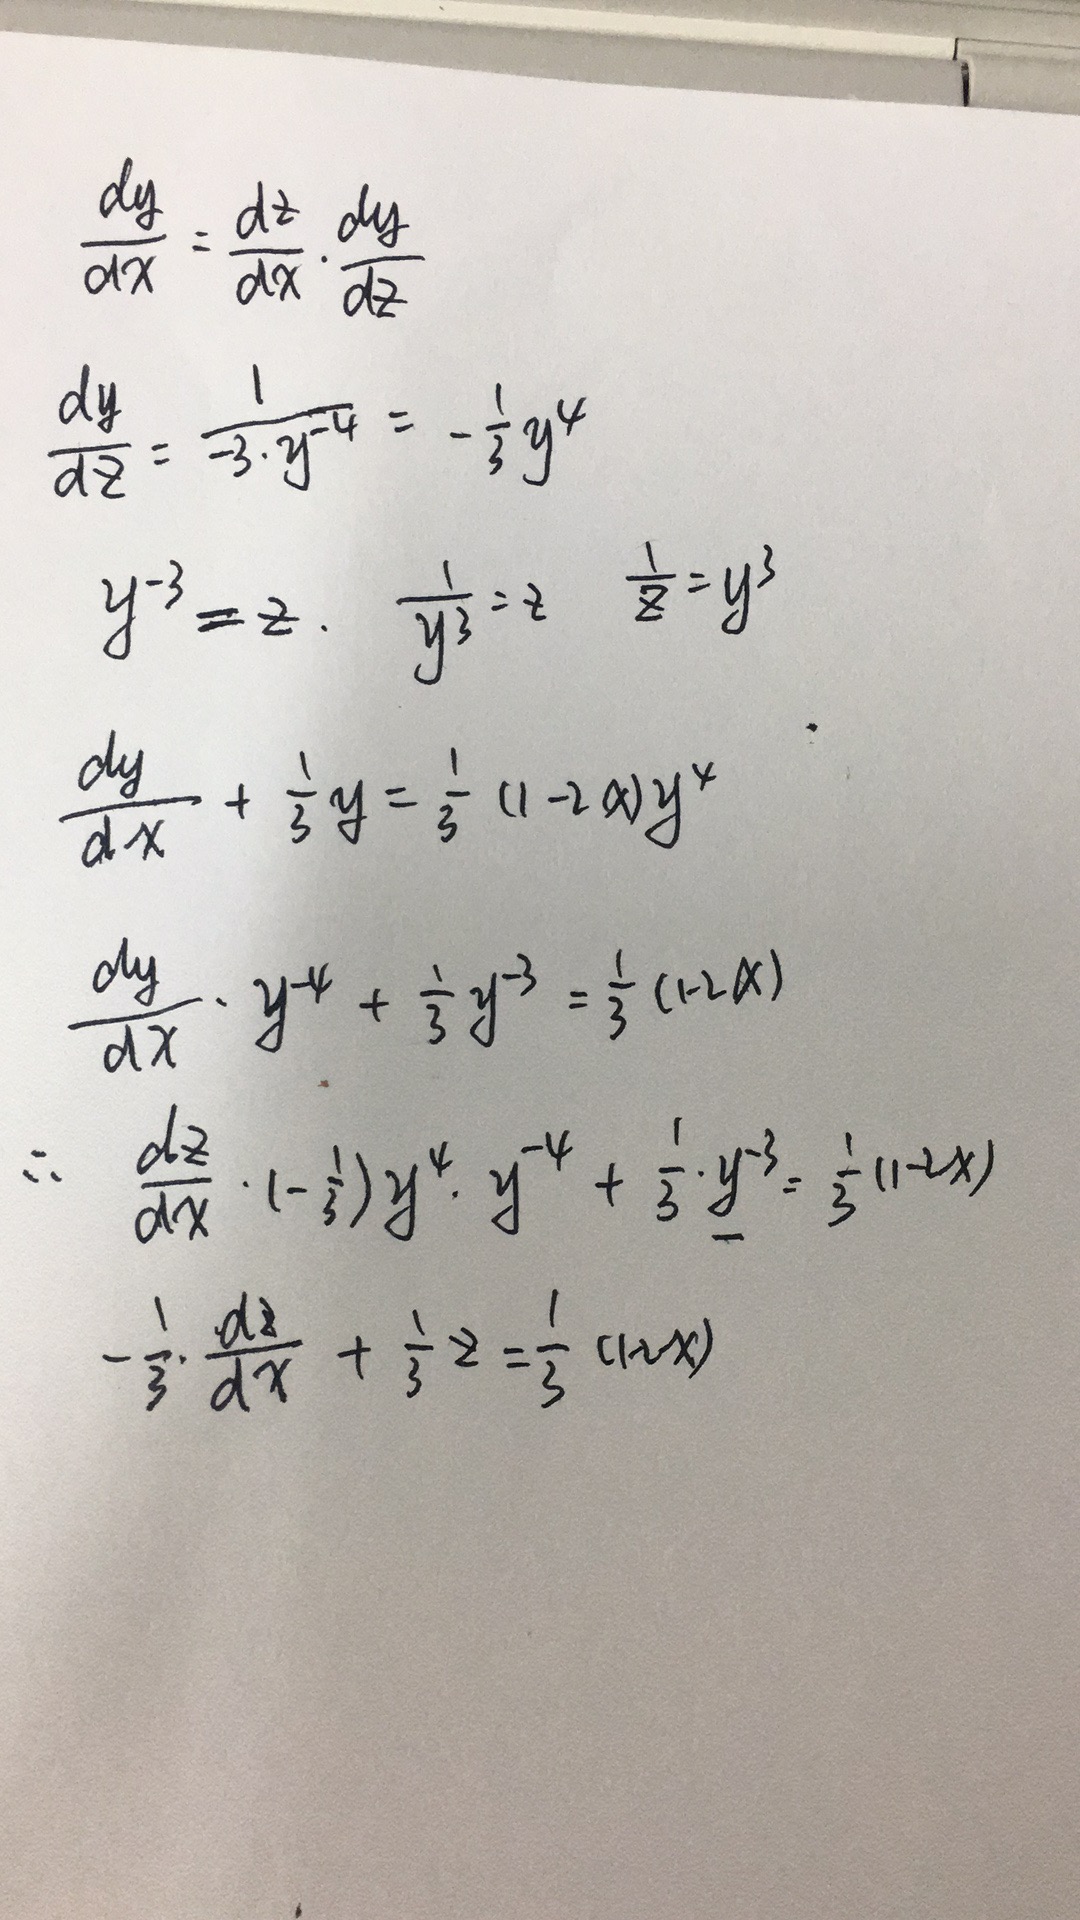 dy/dx = dz/dx · dy/dz
dy/dz = 1/(-3·y⁻⁴) = -1/3 y⁴
y⁻³ = z. 1/y³ = z 1/z = y³
dy/dx + 1/3 y = 1/3 (1-2x)y⁴
dy/dx · y⁻⁴ + 1/3 y⁻³ = 1/3 (1-2x)
∴ dz/dx · (-1/3)y⁴· y⁻⁴ + 1/3 · y⁻³ = 1/3 (1-2x)
-1/3 · dz/dx + 1/3 z = 1/3 (1-2x)